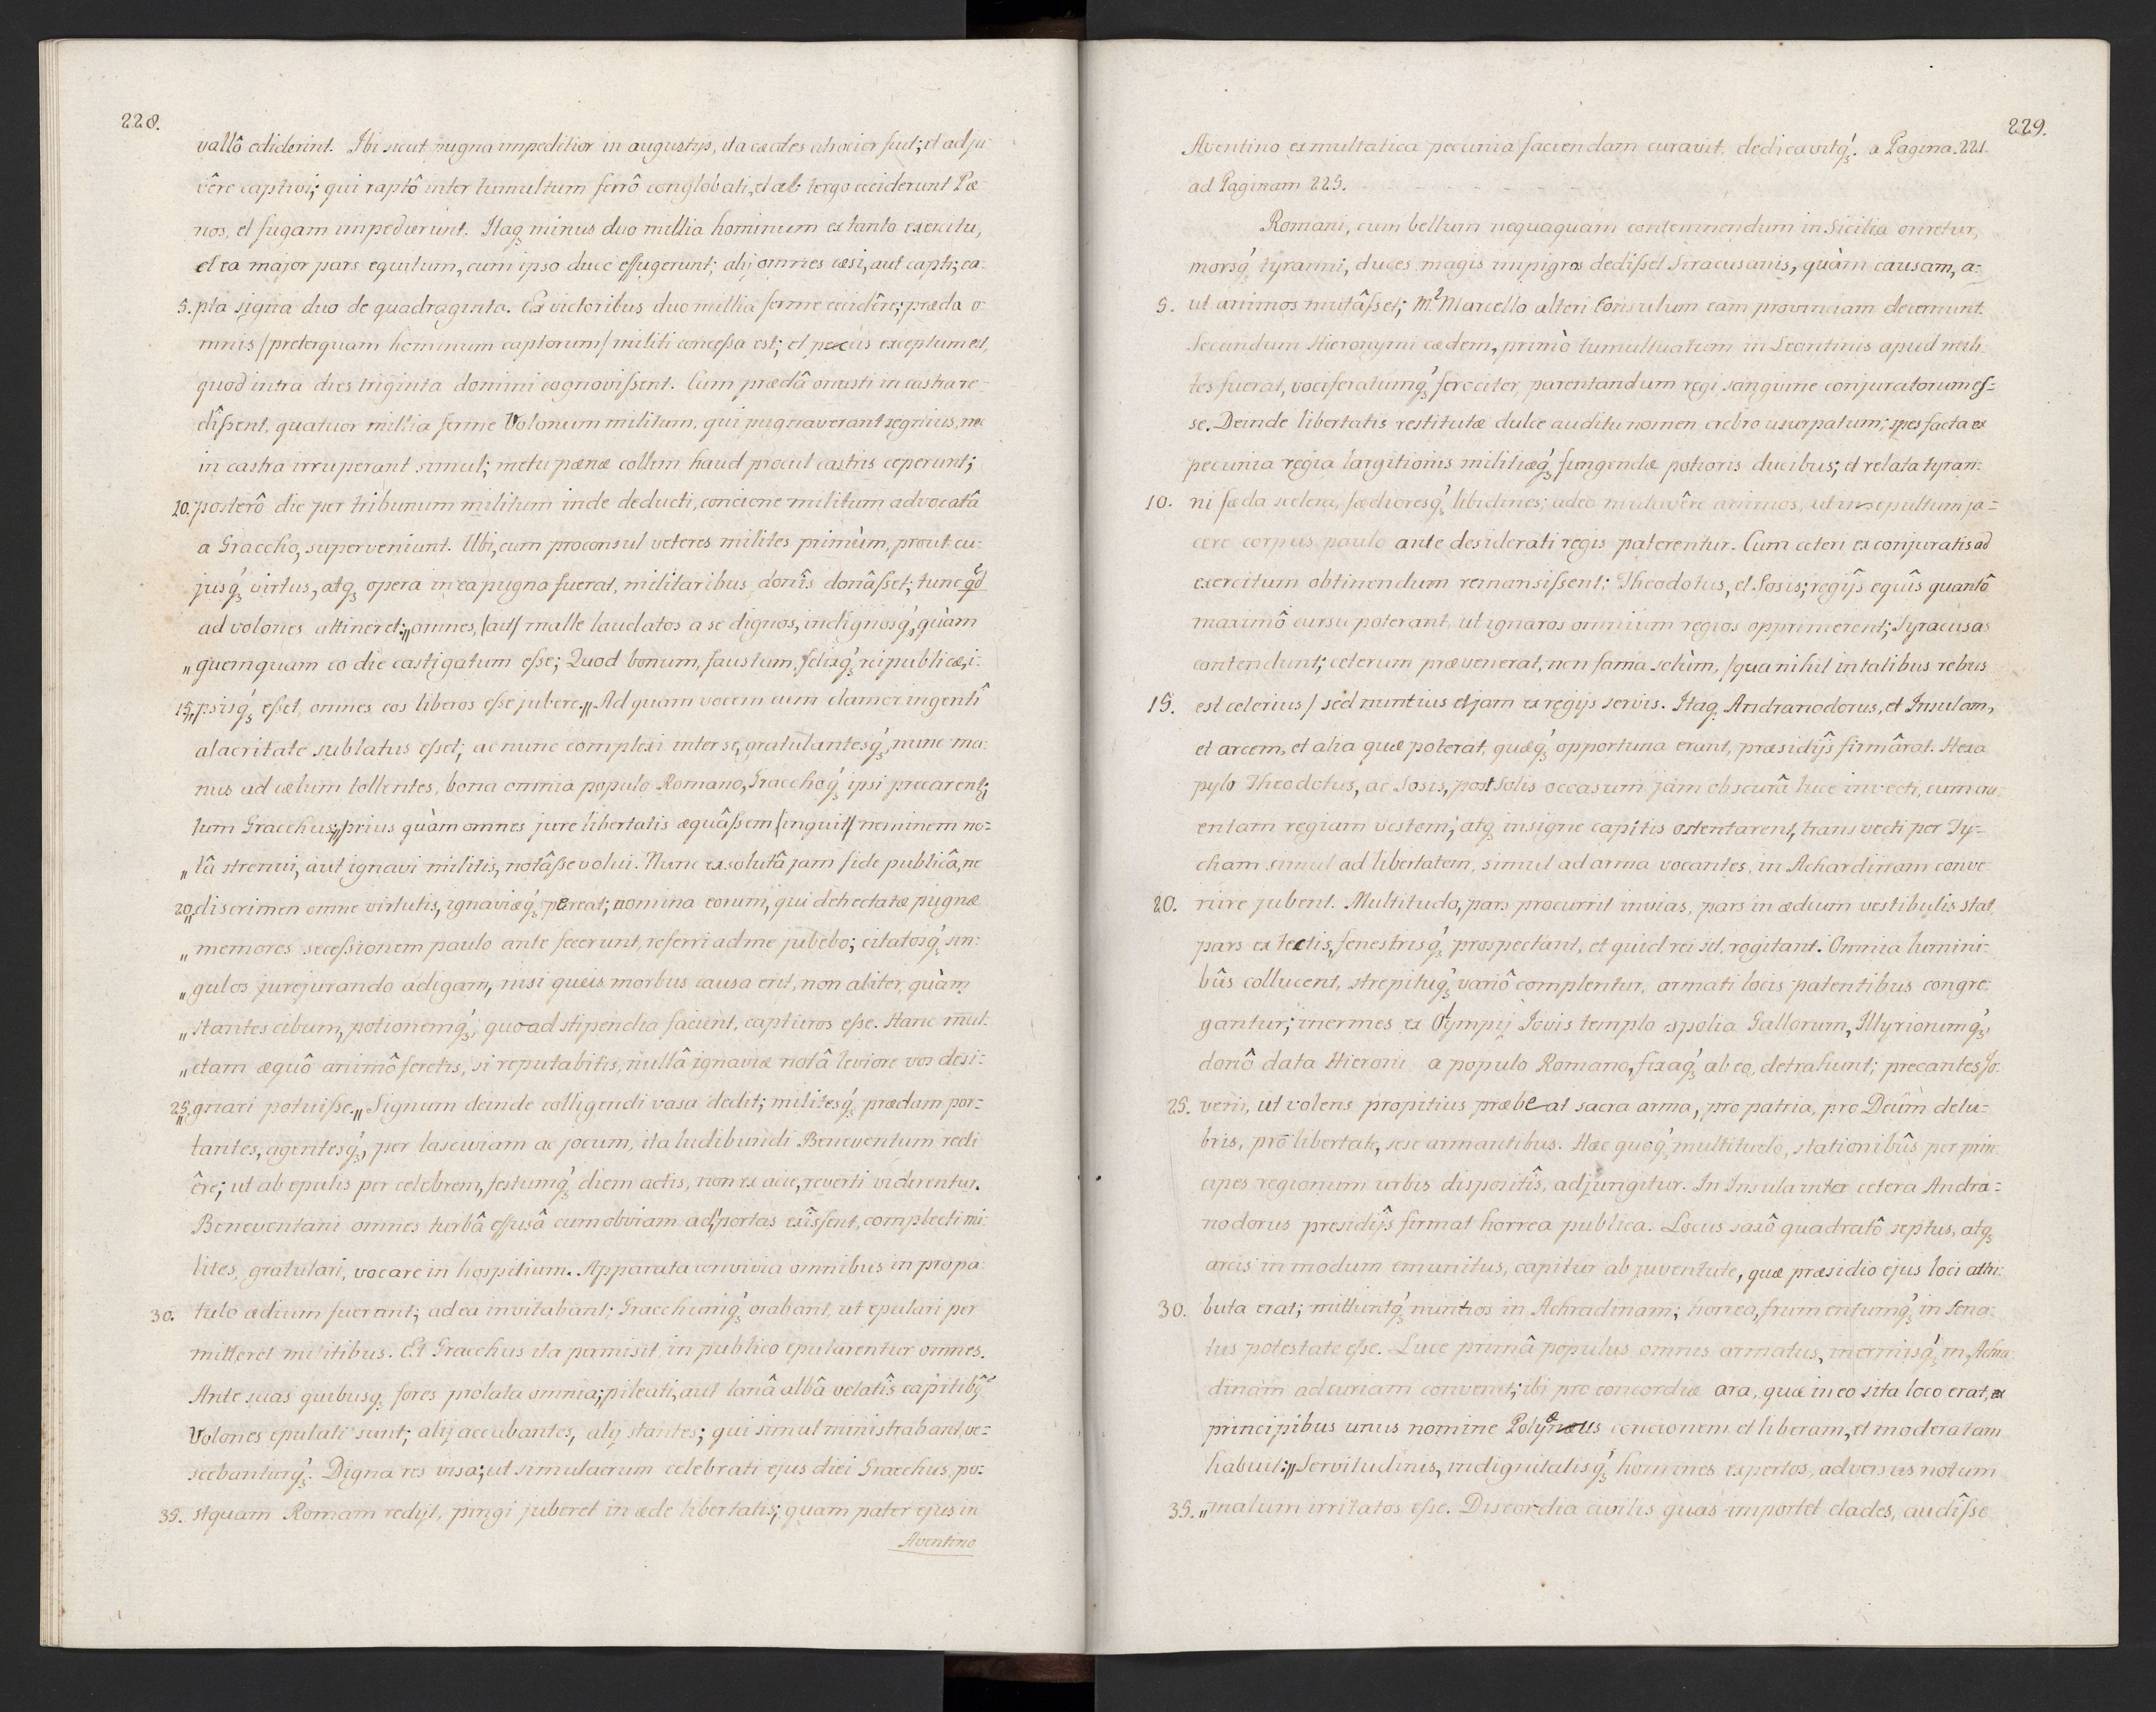 228.
vallô ediderint. Ibi sicut pugna impeditior in angustijs, ita cædes atrocior fuit; et adju
vêre captivi; qui raptô inter tumultum ferrô conglobati, et ab tergo ceciderunt Pæ
nos, et fugam impedierunt. Itaq₃ minus duo millia hominum ex tanto exercitu,
et ea major pars equitum, cum ipso duce effugerunt; alij omnes cæsi, aut capti; ca
5. pta signa duo de quadraginta. Ex victoribus duo millia ferme cecidêre; præda o
mnis /preterquam hominum captorum/ militi concessa est; et pecus exceptum est,
quod intra dies triginta domini cognovissent. Cum prædâ onusti in castra re-
dîssent, quatuor millia ferme Volonum militum, qui pugnaverant segnius, nec
in castra irruperant simul; metu pænæ collem haud procul castris ceperunt;
10. posterô die per tribunum militum inde deducti, concione militum advocatâ
a Graccho, superveniunt. Ubi, cum proconsul veteres milites primùm, prout cu:
jusq́₃ virtus, atq₃ opera in ea pugna fuerat, militaribus donîs donâsset; tunc qd
ad volones attineret: „omnes, /ait/ malle laudatos a se dignos, indignosq́₃, quàm
„ quemquam eo die castigatum esse; Quod bonum, faustum, felixq́₃ reipublicæ, i:
15. „psisq́₃ esset, omnes eos liberos esse jubere.„ Ad quam vocem cum clamor ingentî
alacritate sublatus esset; ac nunc complexi inter se, gratulantesq́₃, nunc ma:
nus ad cælum tollentes, bona omnia populo Romano, Gracchoq́₃ ipsi precarent;
tum Gracchus; „prius quàm omnes jure libertatis æquâssem /inquit/ neminem no=
„ tâ strenui, aut ignavi militis, notâsse volui. Nunc exsolutâ jam fide publicâ, ne
20. „discrimen omne virtutis, ignaviæq́₃ pereat; nomina eorum, qui detrectatæ pugnæ
„ memores secessionem paulo ante fecerunt, referri ad me jubebo; citatosq́₃ sin:
„ gulos jurejurando adigam, nisi queis morbus causa erit, non aliter, quàm
„ stantes cibum, potionemq́₃, quoad stipendia facient, capturos esse. Hanc mul
„ ctam æquô animô feretis, si reputabitis, nullâ ignaviæ notâ leviore vos desi=
25. „gnari potuisse.„ Signum deinde colligendi vasa dedit; militesq́₃ prædam por=
tantes, agentesq́₃, per lasciviam ac jocum, ita ludibundi Beneventum redi
êre; ut ab epulis per celebrem, festumq́₃ diem actis, non ex acie, reverti viderentur.
Beneventani omnes turbâ effusâ cum obviam ad portas exîssent, complecti mi
lites, gratulari, vocare in hospitium. Apparata convivia omnibus in propa
30. tulo ædium fuerant; ad ea invitabant; Gracchumq́₃ orabant, ut epulari per
mitteret militibus. Et Gracchus ita permisit, in publico epularentur omnes.
Ante suas quibusq₃ fores prolata omnia; pileati, aut lanâ albâ velatîs capitibq
Volones epulati sunt; alij accubantes, alij stantes; qui simul ministrabant, ve=
scebanturq́₃. Digna res visa; ut simulacrum celebrati ejus diei Gracchus, po:
35. stquam Romam redijt, pingi juberet in æde libertatis; quam pater ejus in
Aventino
229.
Aventino ex multatica pecunia faciendam curavit, dedicavitq́₃. a Pagina. 221
ad Paginam 225.
Romani, cum bellum nequaquam contemnendum in Sicilia oriretur,
morsq́₃ tyranni, duces magis impigros dedisset Siracusanis, quàm causam, a=
5. ut animos mutâsset; M. Marcello alteri Consulum eam provinciam decernunt.
Secundum Hieronymi cædem, primò tumultuatum in Leontinis apud mili:
tes fuerat, vociferatumq́₃ ferociter, parentandum regi sanguine conjuratorum es=
se. Deinde libertatis restitutæ dulce auditu nomen crebro usurpatum; spes facta ex
pecunia regia largitionis militiæq́₃ fungendæ potioris ducibus; et relata tyran:
10. ni fæda scelera, fædioresq́₃ libidines; adeo mutavêre animos, ut insepultum ja=
cere corpus paulo ante desiderati regis paterentur. Cum ceteri ex conjuratis ad
exercitum obtinendum remansissent; Theodotus, et Sosis; regijs equîs quantô
maximô cursu poterant, ut ignaros omnium regios opprimerent; Syracusas
contendunt; ceterum prævenerat, non fama solùm, /qua nihil in talibus rebus
15. est celerius/ sed nuntius etjam ex regijs servis. Itaq₃ Andranodorus, et Insulam,
et arcem, et alia quæ poterat, quæq́₃ opportuna erant, præsidijs firmârat. Hexa
pylo Theodotus, ac Sosis, post Solis occasum jam obscurâ luce invecti, cum cru
entam regiam vestem, atq₃ insigne capitis ostentarent, transvecti per Ty=
cham simul ad libertatem, simul ad arma vocantes, in Achardinam conve
20. nire jubent. Multitudo, pars procurrit in vias, pars in ædium vestibulis stat,
pars ex tectis, fenestrisq́₃ prospectant, et quid rei sit, rogitant. Omnia lumini:
bûs collucent, strepituq́₃ variô complentur, armati locis patentibus congre:
gantur; inermes ex Olympij Jovis templo spolia Gallorum, Illyriorumq́₃,
donô data Hieroni a populo Romano, fixaq́₃ ab eo, detrahunt; precantes Jo:
25. vem, ut volens propitius præbeat sacra arma, pro patria, pro Deûm delu=
bris, prô libertate, sese armantibus. Hæc quoq́₃ multitudo, stationibûs per prin
cipes regionum urbis dispositîs, adjungitur. In Insula inter cetera Andra=
nodorus presidijs firmat horrea publica. Locus saxô quadratô septus, atq₃
arcis in modum emunitus, capitur ab juventute, quæ præsidio ejus loci attri:
30. buta erat; mittuntq́₃ nuntios in Achradinam; horrea, frumentumq́₃ in Sena:
tus potestate esse. Luce primâ populus omnis armatus, inermisq́₃ in Achra
dinam ad curiam convenit; ibi pro concordiæ ara, quæ in eo sita loco erat, ex
principibus unus nomine Polyænus concionem et liberam, et moderatam
habuit: „Servitudinis, indignitatisq́₃ homines expertos, adversus notum
35. „ malum irritatos esse. Discordia civilis quas importet clades, audîsse